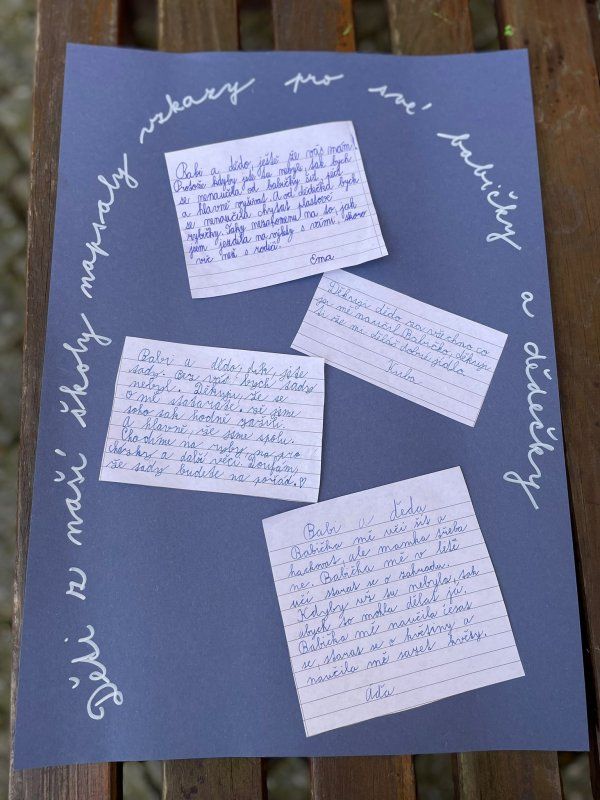 Děti z naší školy napsaly vzkazy pro své babičky a dědečky
Babi a dědo, ještě že vás mám!
Protože kdyby jste tu nebyli, tak bych
se nenaučila od babičky šít, plést
a hlavně vyšívat. A od dědečka bych
se nenaučila chytat plastové
rybičky. Taky nezapomenu na to, jak
jsem jezdila na výlety s vámi, skoro
víc než s rodiči.
Ema
Děkuji dědo za všechno co
jsi mě naučil. Babičko, děkuji
ti že mi děláš dobré jídlo.
Kuba
Babi a dědo, jste
tady. Bez vás bych tady
nebyl. Děkuju, že se
o mě staráte, že jsme
toho tak hodně zažili.
A hlavně že jsme spolu.
Chodíme na ryby, na pro
cházky a další věci. Doufám,
že tady budete na pořád. ♡
Babi a děda
Babička mě učí šít a
háčkovat, ale mamka třeba
ne. Babička mě v létě
učí starat se o zahradu.
Kdyby už tu nebyla, tak
abych to mohla dělat já.
Babička mě naučila česat
se, starat se o květiny a
naučila mě sázet kvítky.
Áďa